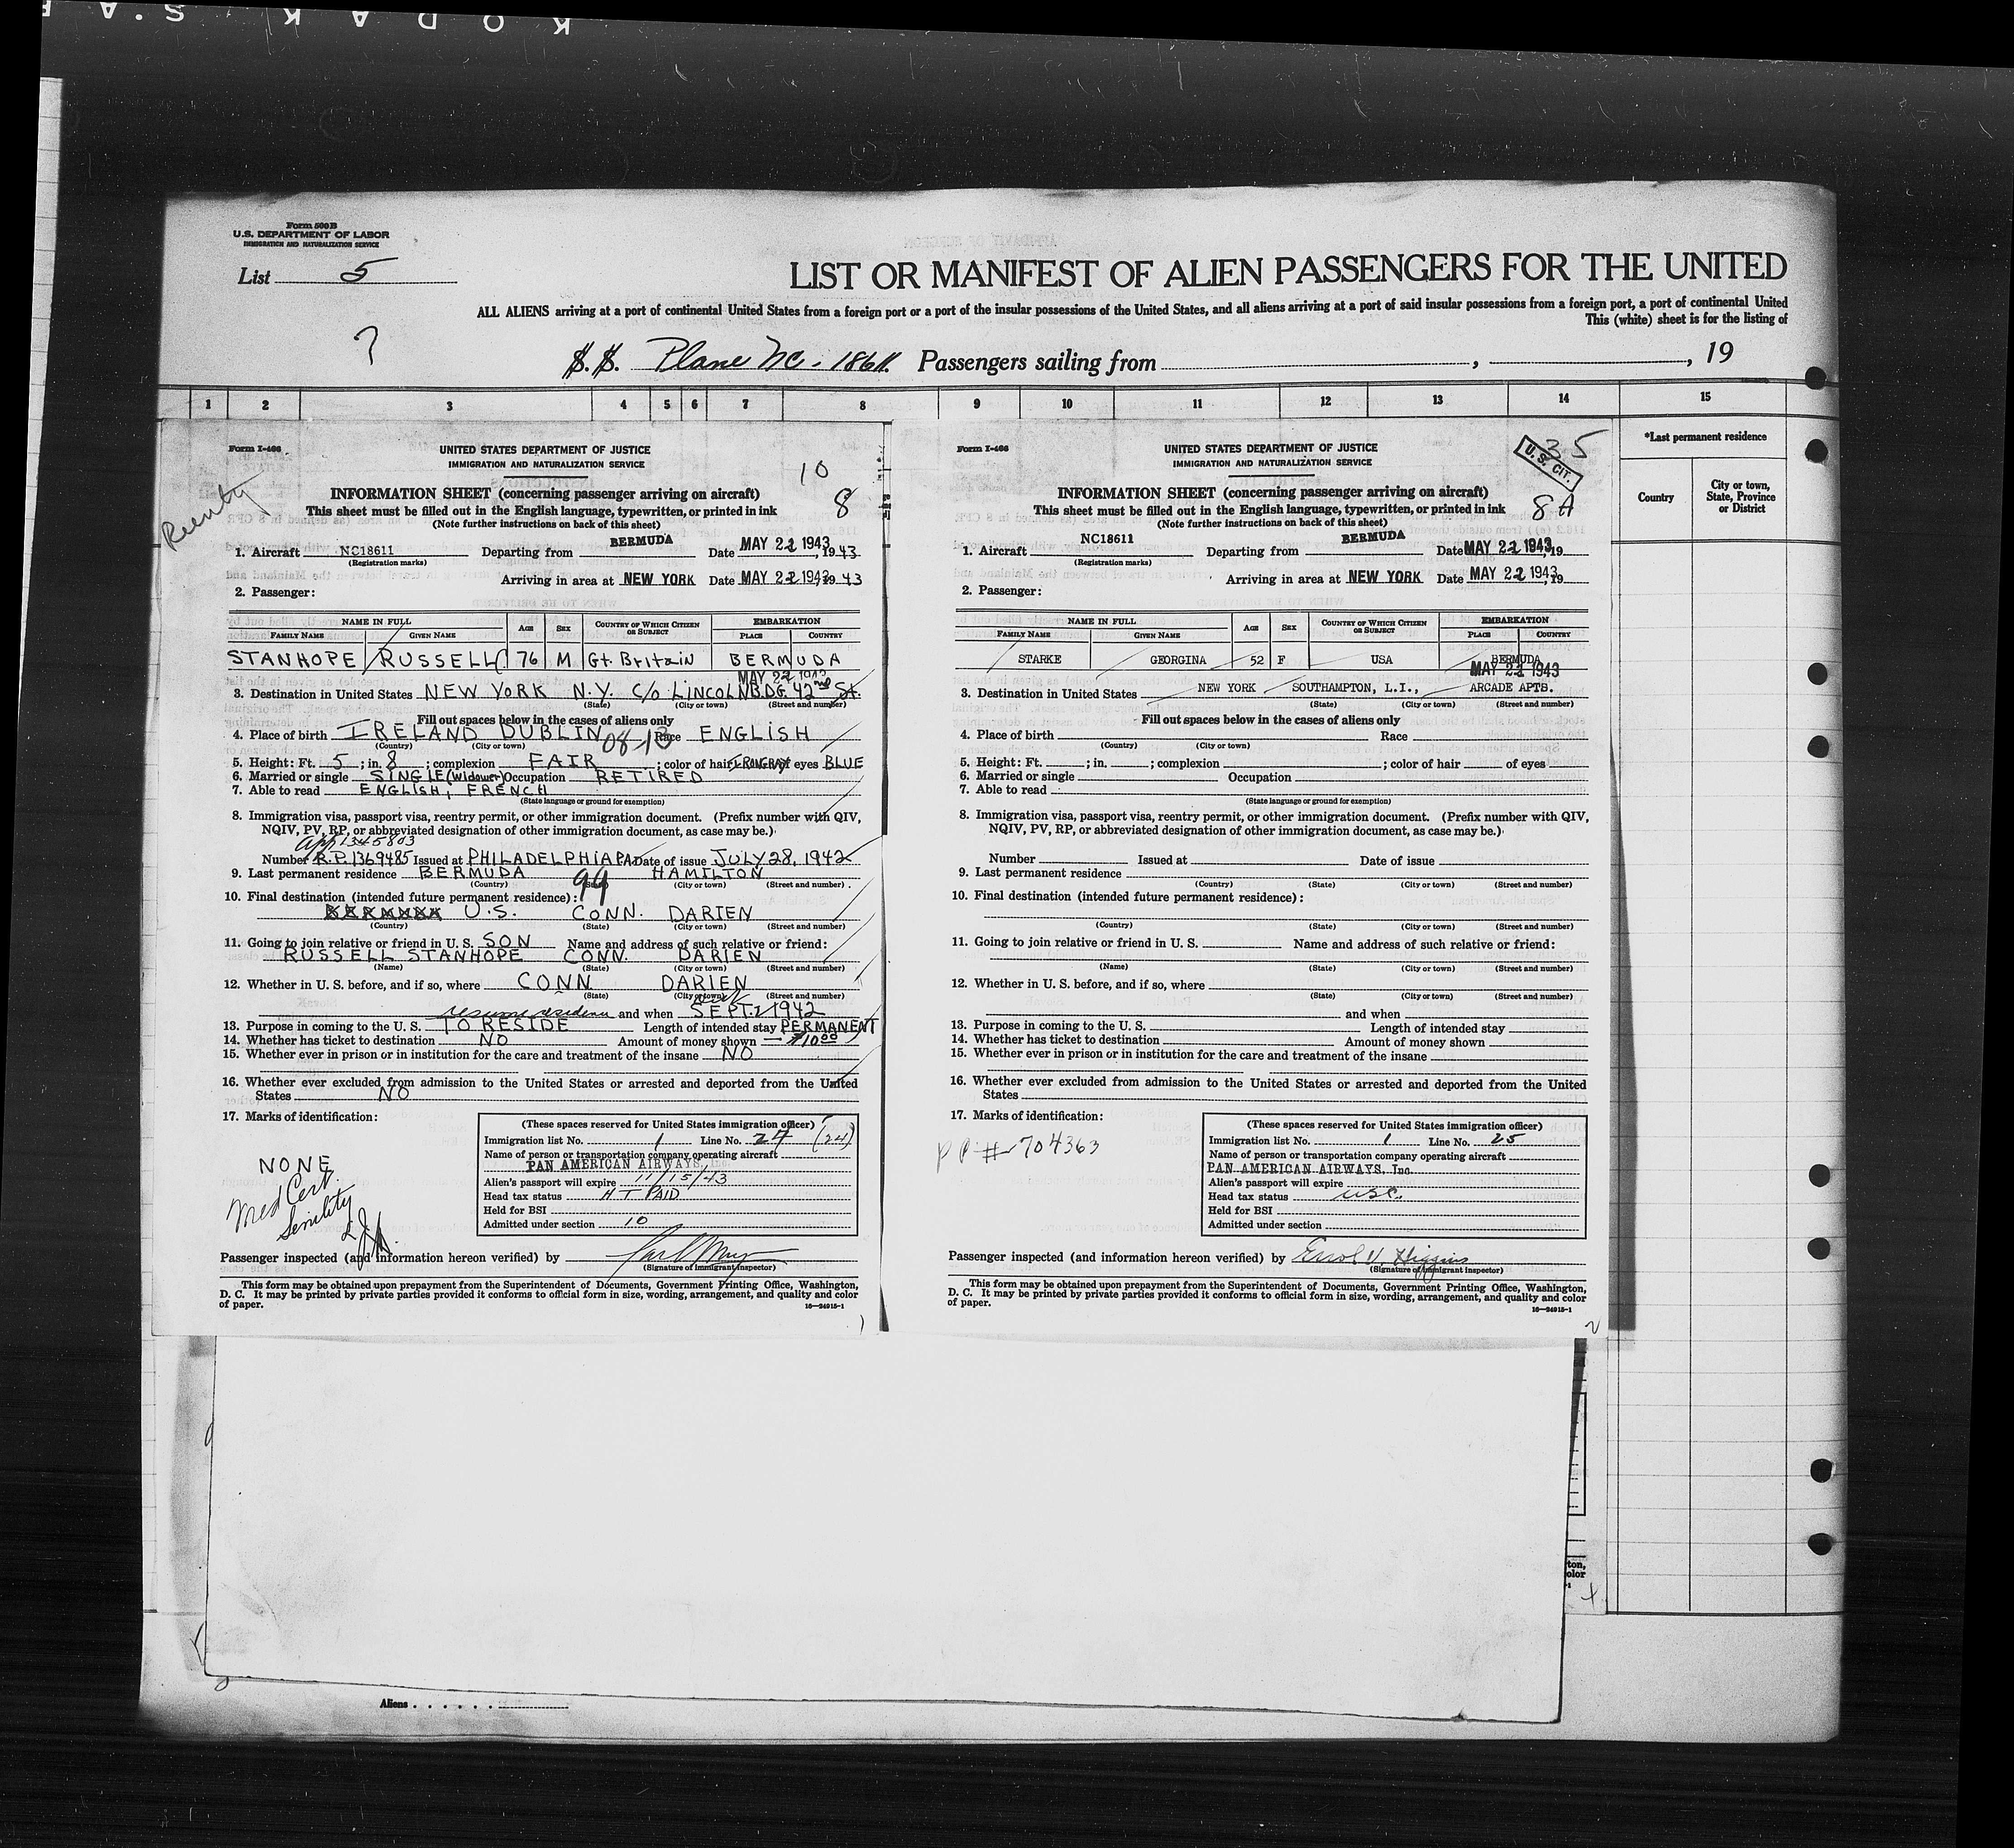 KODAK S.A
Form 500 B
U.S. DEPARTMENT OF LABOR
IMMIGRATION AND NATURALIZATION SERVICE
List 5
LIST OR MANIFEST OF ALIEN PASSENGERS FOR THE UNITED
ALL ALIENS arriving at a port of continental United States from a foreign port or a port of the insular possessions of the United States, and all aliens arriving at a port of said insular possessions from a foreign port, a port of continental United
This (white) sheet is for the listing of
?
S.S. Plane NC-18611 Passengers sailing from , , 19
1 2 3 4 5 6 7 8 9 10 11 12 13 14 15
*Last permanent residence
Country
City or town, State, Province or District
Form I-466
UNITED STATES DEPARTMENT OF JUSTICE
IMMIGRATION AND NATURALIZATION SERVICE
10
8
Reentry
INFORMATION SHEET (concerning passenger arriving on aircraft)
This sheet must be filled out in the English language, typewritten, or printed in ink
(Note further instructions on back of this sheet)
1. Aircraft NC18611 Departing from BERMUDA Date MAY 22 1943, 1943
(Registration marks)
Arriving in area at NEW YORK Date MAY 22 1943, 1943
2. Passenger:
NAME IN FULL AGE SEX COUNTRY OF WHICH CITIZEN OR SUBJECT EMBARKATION
FAMILY NAME GIVEN NAME PLACE COUNTRY
STANHOPE RUSSELL 76 M Gt. Britain BERMUDA
MAY 22 1943
3. Destination in United States NEW YORK N.Y. C/O LINCOLN BDG. 42nd St.
(State) (City or town) (Street and number)
Fill out spaces below in the cases of aliens only
4. Place of birth IRELAND DUBLIN 08-13 Race ENGLISH
(Country) (City or town)
5. Height: Ft. 5; in. 8; complexion FAIR; color of hair IRONGRAY of eyes BLUE
6. Married or single SINGLE (Widower) Occupation RETIRED
7. Able to read ENGLISH, FRENCH
(State language or ground for exemption)
8. Immigration visa, passport visa, reentry permit, or other immigration document. (Prefix number with QIV,
NQIV, PV, RP, or abbreviated designation of other immigration document, as case may be.)
App 1345803
Number R.P. 1369485 Issued at PHILADELPHIA PA Date of issue JULY 28, 1942
9. Last permanent residence BERMUDA 99 HAMILTON
(Country) (State) (City or town) (Street and number)
10. Final destination (intended future permanent residence):
BERMUDA U.S. CONN. DARIEN
(Country) (State) (City or town) (Street and number)
11. Going to join relative or friend in U. S. SON Name and address of such relative or friend:
RUSSELL STANHOPE CONN. DARIEN
(Name) (State) (City or town) (Street and number)
12. Whether in U. S. before, and if so, where CONN DARIEN
(State) (City or town) (Street and number)
resume residence and when SEPT. 1942
13. Purpose in coming to the U. S. TO RESIDE Length of intended stay PERMANENT
14. Whether has ticket to destination NO Amount of money shown $10.00
15. Whether ever in prison or in institution for the care and treatment of the insane NO
16. Whether ever excluded from admission to the United States or arrested and deported from the United
States NO
17. Marks of identification:
NONE
Med Cert.
Senility
(These spaces reserved for United States immigration officer)
Immigration list No. 1 Line No. 24 (24)
Name of person or transportation company operating aircraft
PAN AMERICAN AIRWAYS, Inc.
Alien's passport will expire 11/15/43
Head tax status H T PAID
Held for BSI
Admitted under section 10
Passenger inspected (and information hereon verified) by
(Signature of immigrant inspector)
This form may be obtained upon prepayment from the Superintendent of Documents, Government Printing Office, Washington,
D. C. It may be printed by private parties provided it conforms to official form in size, wording, arrangement, and quality and color
of paper.
16—24915-1
Form I-466
UNITED STATES DEPARTMENT OF JUSTICE
IMMIGRATION AND NATURALIZATION SERVICE
35
U. S. CIT.
8A
INFORMATION SHEET (concerning passenger arriving on aircraft)
This sheet must be filled out in the English language, typewritten, or printed in ink
(Note further instructions on back of this sheet)
1. Aircraft NC18611 Departing from BERMUDA Date MAY 22 1943, 19
(Registration marks)
Arriving in area at NEW YORK Date MAY 22 1943, 19
2. Passenger:
NAME IN FULL AGE SEX COUNTRY OF WHICH CITIZEN OR SUBJECT EMBARKATION
FAMILY NAME GIVEN NAME PLACE COUNTRY
STARKE GEORGINA 52 F USA BERMUDA
MAY 22 1943
3. Destination in United States NEW YORK SOUTHAMPTON, L.I., ARCADE APTS.
(State) (City or town) (Street and number)
Fill out spaces below in the cases of aliens only
4. Place of birth Race
(Country) (City or town)
5. Height: Ft. ; in. ; complexion ; color of hair of eyes
6. Married or single Occupation
7. Able to read
(State language or ground for exemption)
8. Immigration visa, passport visa, reentry permit, or other immigration document. (Prefix number with QIV,
NQIV, PV, RP, or abbreviated designation of other immigration document, as case may be.)
Number Issued at Date of issue
9. Last permanent residence
(Country) (State) (City or town) (Street and number)
10. Final destination (intended future permanent residence):
(Country) (State) (City or town) (Street and number)
11. Going to join relative or friend in U. S. Name and address of such relative or friend:
(Name) (State) (City or town) (Street and number)
12. Whether in U. S. before, and if so, where
(State) (City or town) (Street and number)
and when
13. Purpose in coming to the U. S. Length of intended stay
14. Whether has ticket to destination Amount of money shown
15. Whether ever in prison or in institution for the care and treatment of the insane
16. Whether ever excluded from admission to the United States or arrested and deported from the United
States
17. Marks of identification:
PP # 704363
(These spaces reserved for United States immigration officer)
Immigration list No. 1 Line No. 25
Name of person or transportation company operating aircraft
PAN AMERICAN AIRWAYS, Inc.
Alien's passport will expire
Head tax status USC.
Held for BSI
Admitted under section
Passenger inspected (and information hereon verified) by Errol V. Higgins
(Signature of immigrant inspector)
This form may be obtained upon prepayment from the Superintendent of Documents, Government Printing Office, Washington,
D. C. It may be printed by private parties provided it conforms to official form in size, wording, arrangement, and quality and color
of paper.
16—24915-1
2
ton,
olor
Aliens